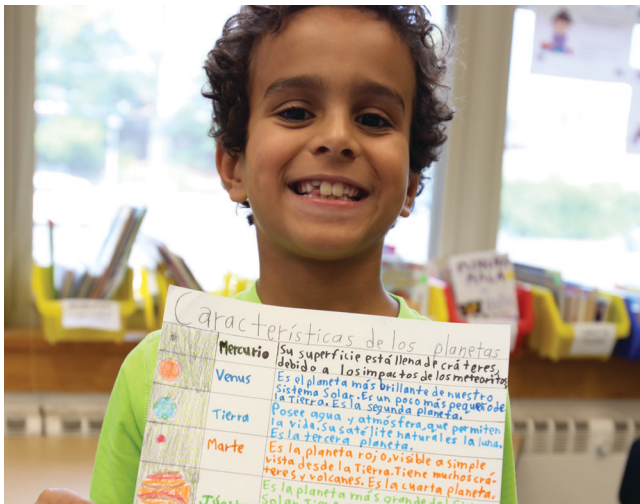 Características de los planetas
Mercurio
Su superficie está llena de cráteres,
debido a los impactos de los meteoritos
Venus
Es el planeta más brillante de nuestro
Sistema Solar. Es un poco más pequeño de
la Tierra. Es la segunda planeta.
Tierra
Posee agua y atmósfera, que permiten
la vida. Su satélite natural es la luna.
Es la tercera planeta.
Marte
Es la planeta rojo, visible a simple
vista desde la Tierra. Tiene muchos crá-
teres y volcanes. Es la cuarta planeta.
Es la planeta más grande del
Solar